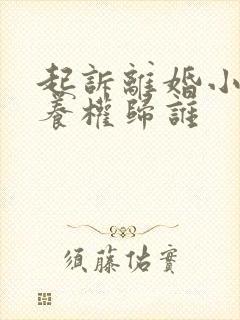 起訴離婚小
養權歸誰
須藤佑實